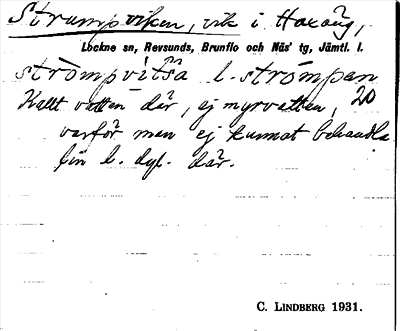 Strumpviken, vik i Haxäng,
Lockne sn, Revsunds, Brunflo och Näs' tg, Jämtl. l.
strömpvitša l. strömpan
Kallt vatten där, ej myrvatten, 20
varför man ej kunnat behandla
lin o. dyl. där.
C. LINDBERG 1931.